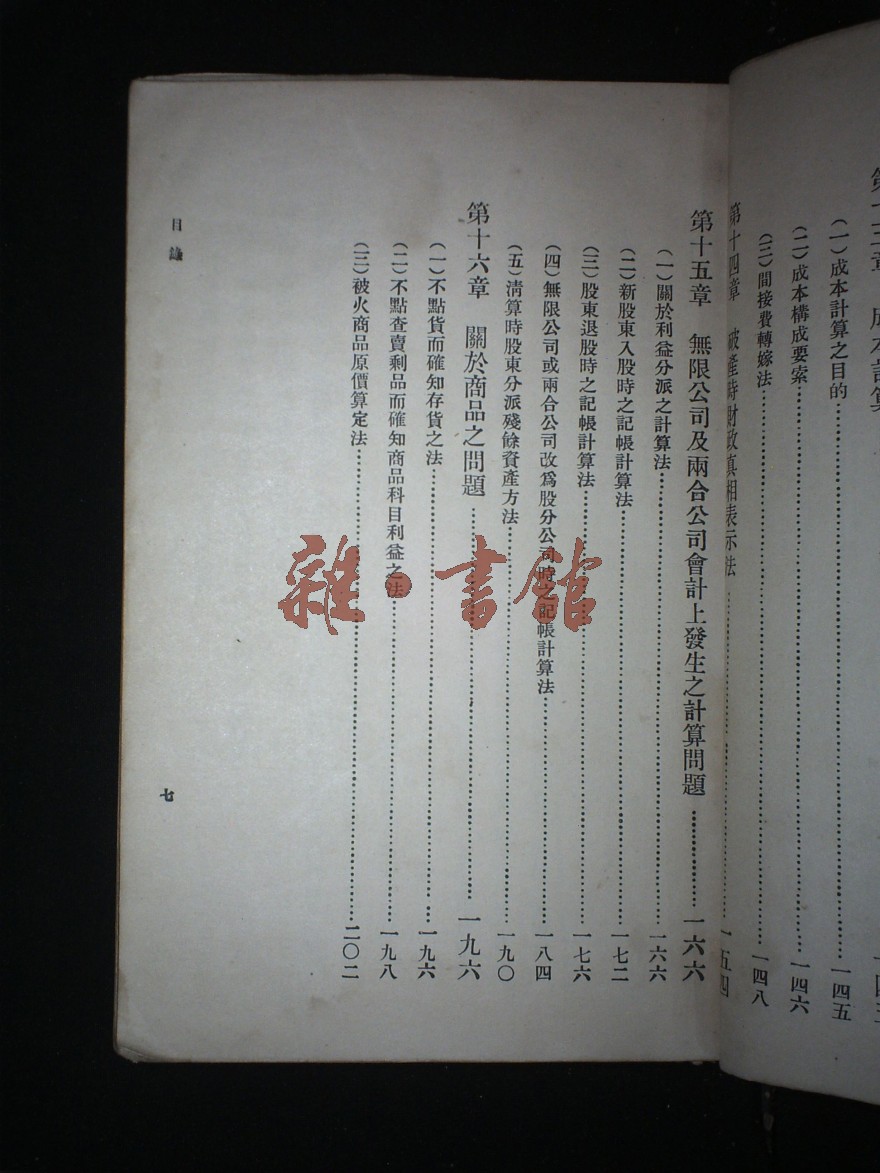 第十三章 成本計算
(一)成本計算之目的……一四五
(二)成本構成要索……一四六
(三)間接費轉嫁法……一四八
第十四章 破產時財政真相表示法……一五四
第十五章 無限公司及兩合公司會計上發生之計算問題……一六六
(一)關於利益分派之計算法……一六六
(二)新股東入股時之記帳計算法……一七二
(三)股東退股時之記帳計算法……一七六
(四)無限公司或兩合公司改爲股分公司時之記帳計算法……一八四
(五)淸算時股東分派殘餘資產方法……一九〇
第十六章 關於商品之問題……一九六
(一)不點貨而確知存貨之法……一九六
(二)不點查賣剩品而確知商品科目利益之法……一九八
(三)被火商品原價算定法……二〇二
目錄
七
雜·書館